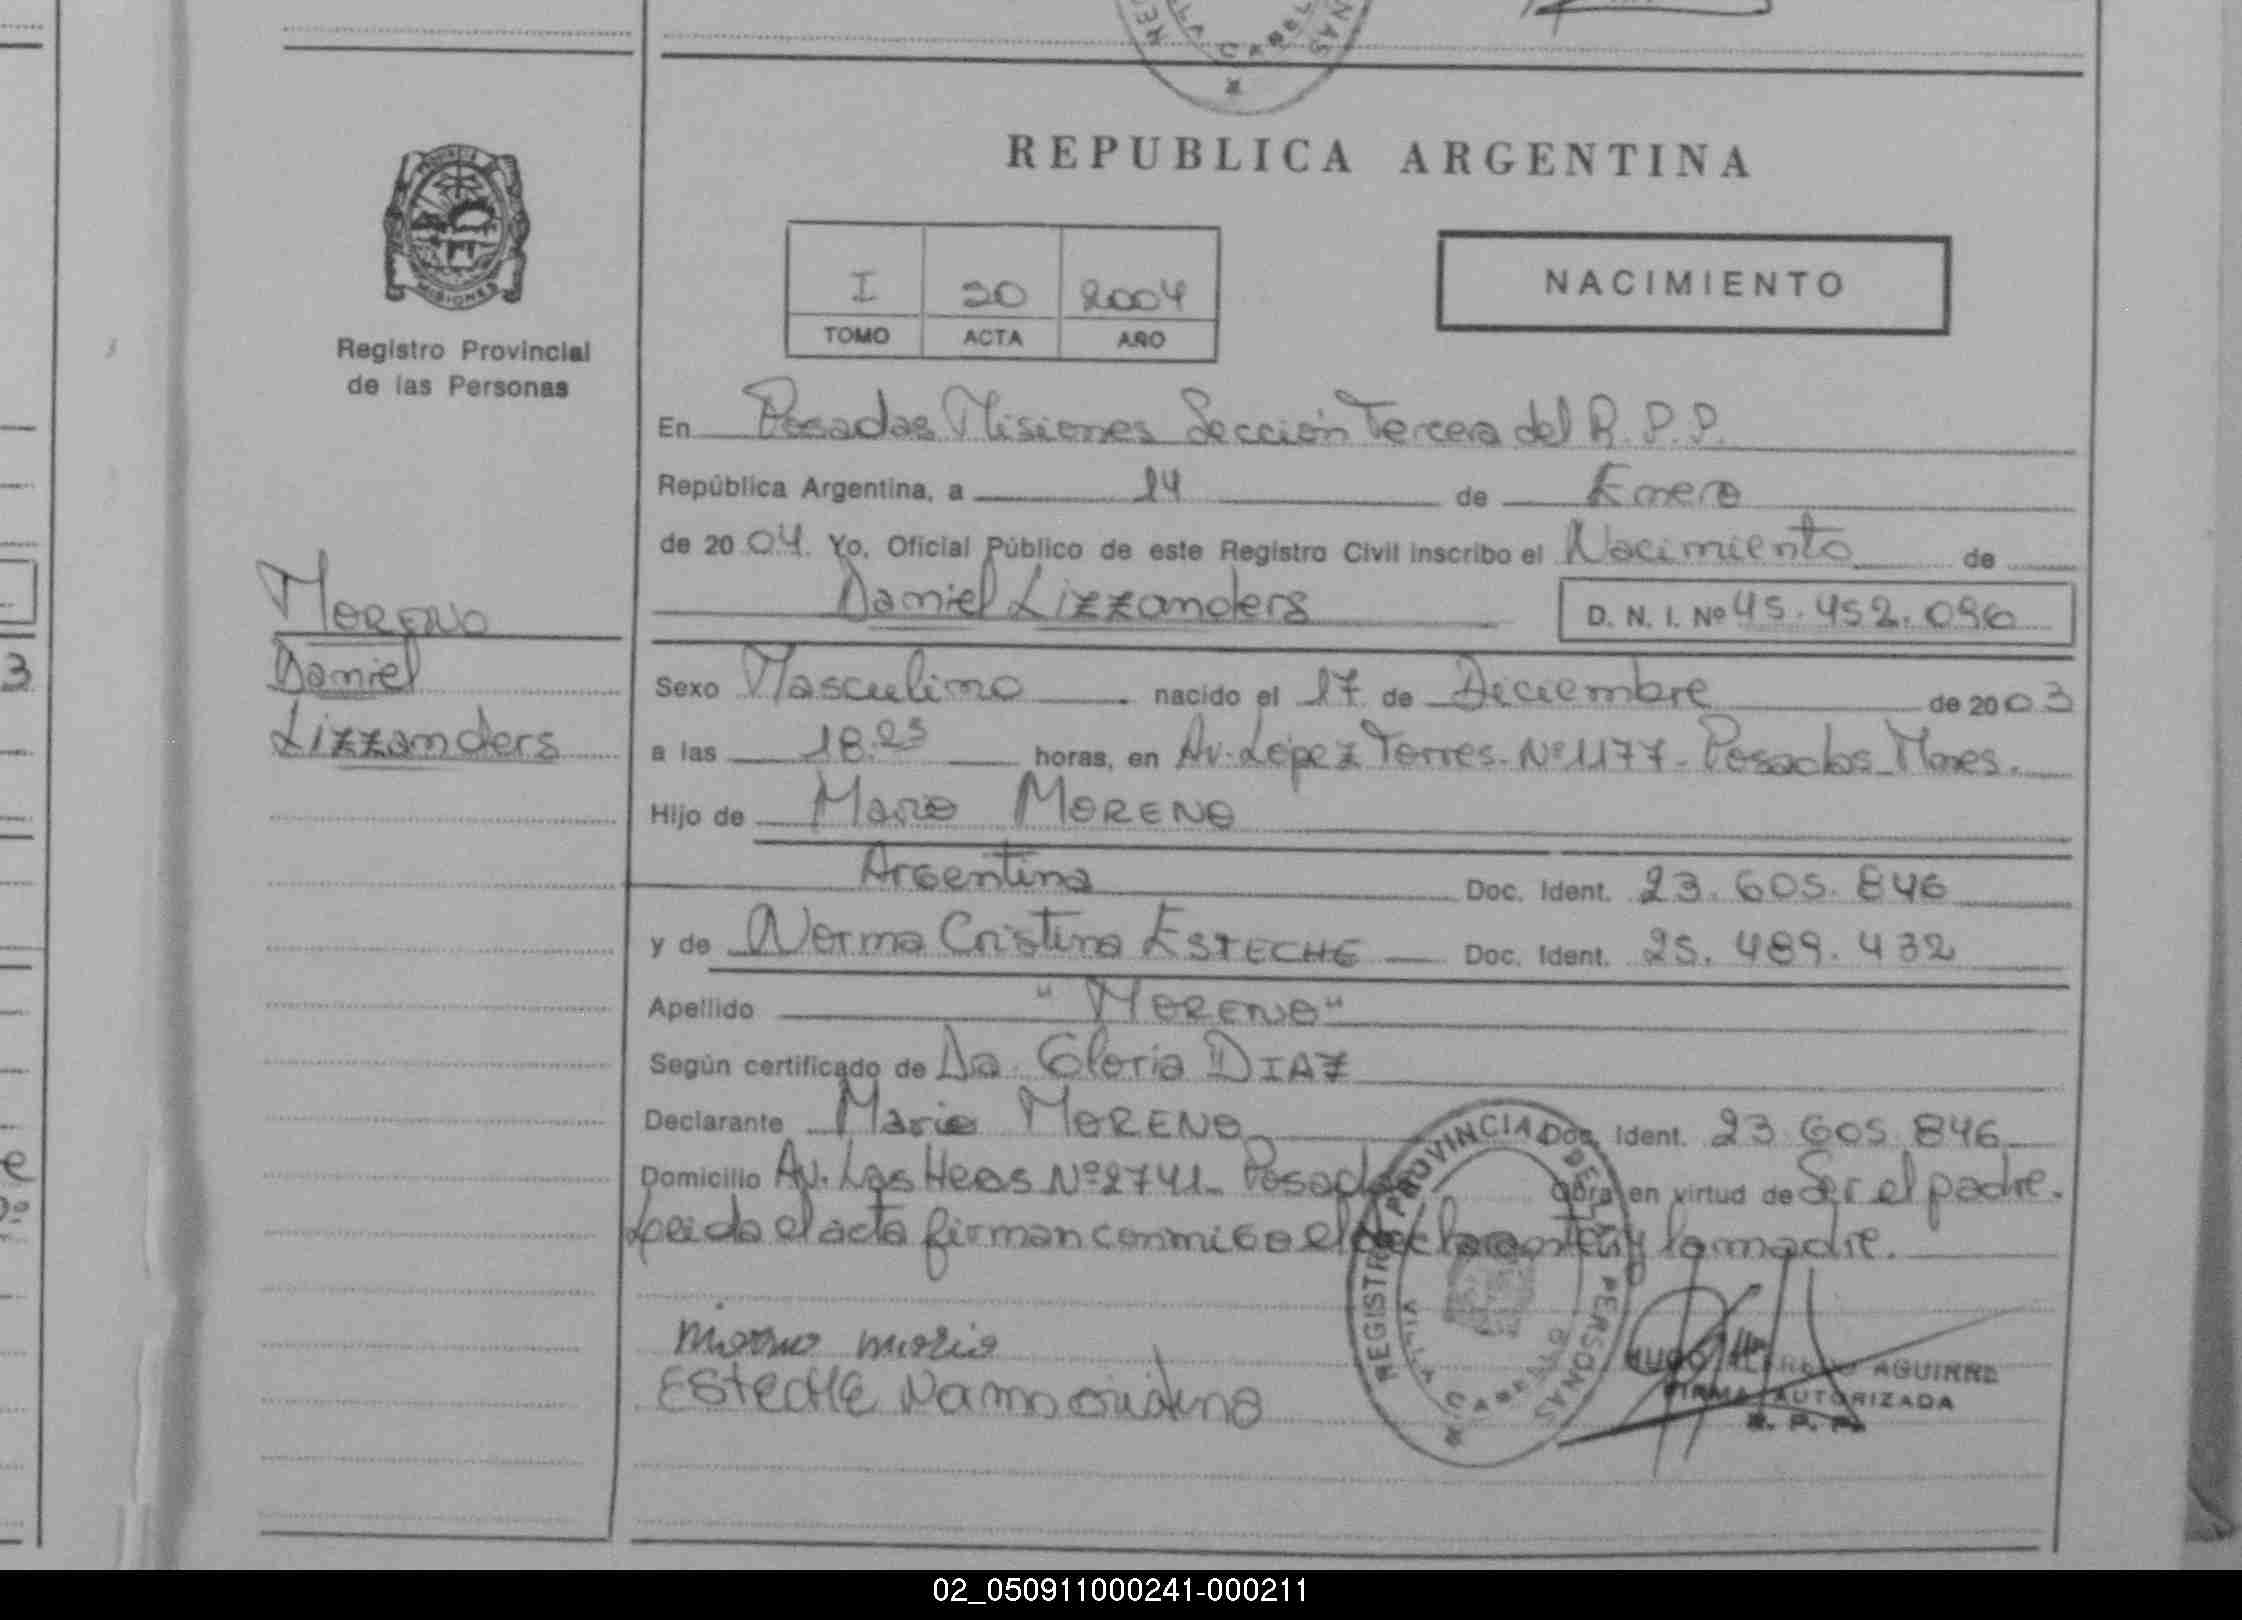 REPUBLICA ARGENTINA
PROVINCIA
MISIONES
Registro Provincial
de las Personas
I 20 2004
TOMO ACTA AÑO
NACIMIENTO
En Posadas Misiones Sección Tercera del R.P.P.
República Argentina, a 14 de Enero
de 2004. Yo, Oficial Público de este Registro Civil inscribo el Nacimiento de
Daniel Lizzanders D. N. I. Nº 45.452.096
MORENO
Daniel
Lizzanders
Sexo Masculino nacido el 17 de Diciembre de 2003
a las 18.23 horas, en Av. López Torres. Nº 1177 - Posadas Mnes.
Hijo de Mario MORENO
Argentina Doc. Ident. 23.605.846
y de Norma Cristina ESTECHE Doc. Ident. 25.489.432
Apellido "MORENO"
Según certificado de Da. Gloria DIAZ
Declarante Mario MORENO Doc. Ident. 23 605 846
Domicilio Av. Las Heas Nº 2741 - Posadas Obra en virtud de Ser el padre.
Leida el acta firman conmigo el declarante y la madre.
Moreno Mario
ESTECHE Norma Cristina
REGISTRO PROVINCIAL DE LAS PERSONAS
VILLA CABELLO
HUGO ALFREDO AGUIRRE
FIRMA AUTORIZADA
R. P. P.
02_050911000241-000211